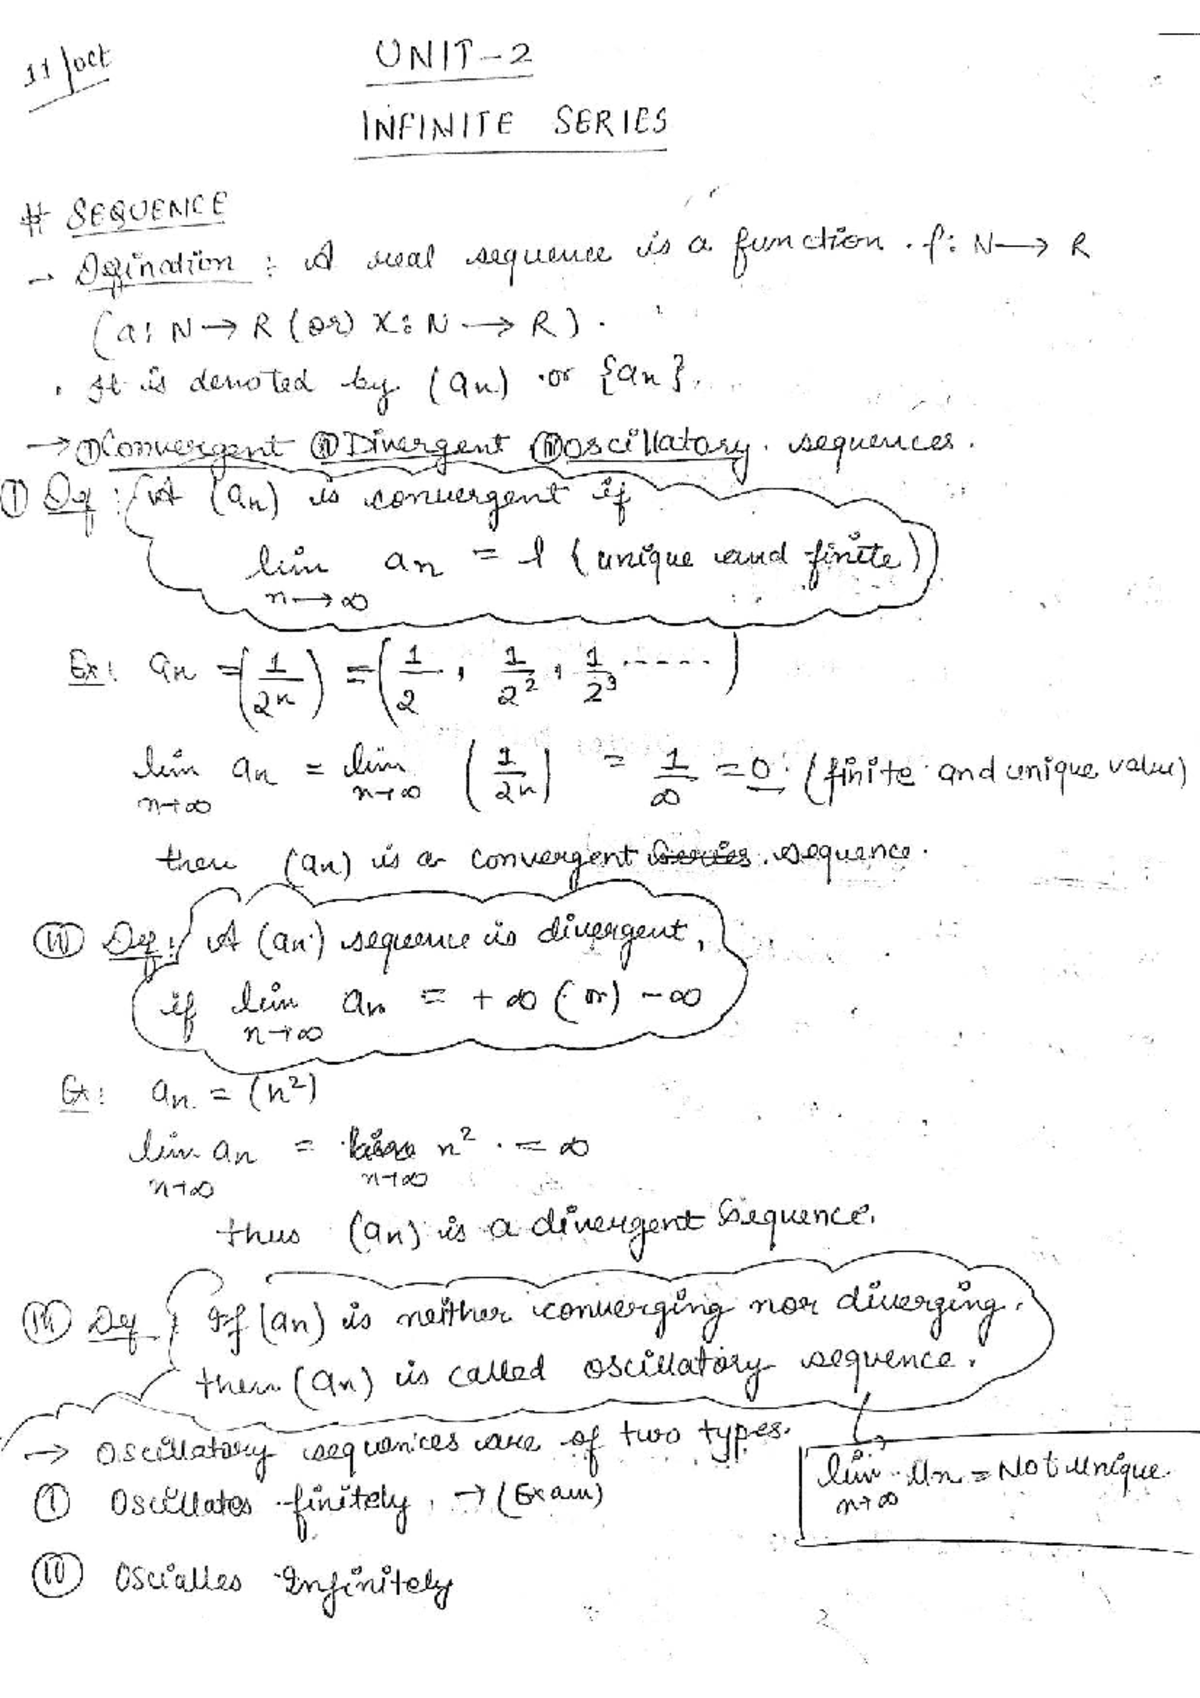 11 Oct
UNIT-2
INFINITE SERIES
# SEQUENCE
→ Defination : A real sequence is a function . f: N → R
(a: N → R (or) X: N → R) .
. It is denoted by (an) or {an}.
→ (I) Convergent (II) Divergent (III) oscillatory . sequences.
(I) Def : A (an) is convergent if
lim n→∞ an = l (unique and finite)
Ex: an = (1/2^n) = (1/2 , 1/2^2 , 1/2^3 .....)
lim n→∞ an = lim n→∞ (1/2n) = 1/∞ = 0 . (finite and unique value)
then (an) is a convergent series . sequence .
(II) Def : A (an) sequence is divergent,
if lim n→∞ an = +∞ (or) -∞
Ex: an = (n^2)
lim n→∞ an = lim n→∞ n^2 . = ∞
thus (an) is a divergent Sequence.
(III) Def : If (an) is neither converging nor diverging.
then (an) is called oscillatory sequence .
→ Oscillatory sequences are of two types.
lim n→∞ un = Not Unique
(I) Oscillates finitely . → (Exam)
(II) Oscialles Infinitely
2